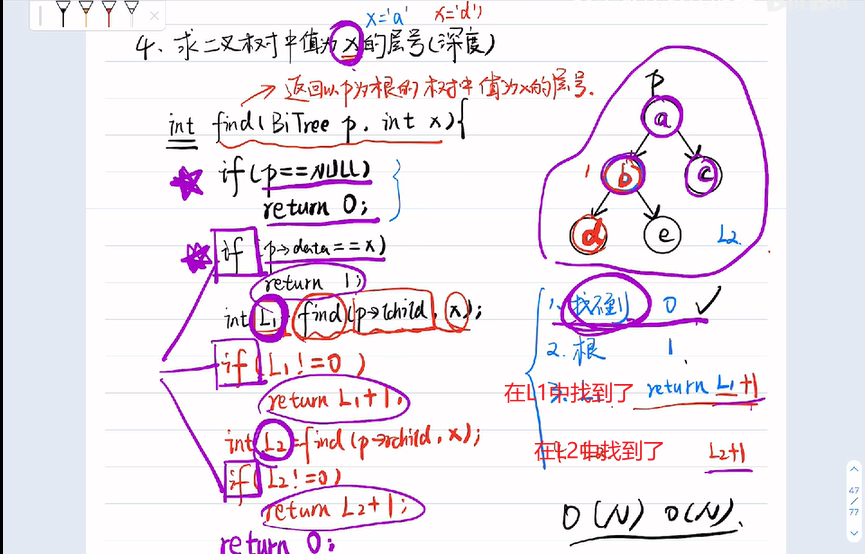 x='a' x='d'
4、求二叉树中值为x的层号(深度)
→返回以p为根的树中值为x的层号.
int find(BiTree p, int x){
if(p==NULL)
return 0;
if p→data==x)
return 1;
int L1=find(p→lchild, x);
if(L1!=0)
return L1+1;
int L2=find(p→rchild, x);
if(L2!=0)
return L2+1;
return 0;
p
a
1 b c
d e L2
1. 找不到 0 ✓
2. 根 1.
在L1中找到了 return L1+1
在L2中找到了 L2+1
O(N) O(N).
47
77